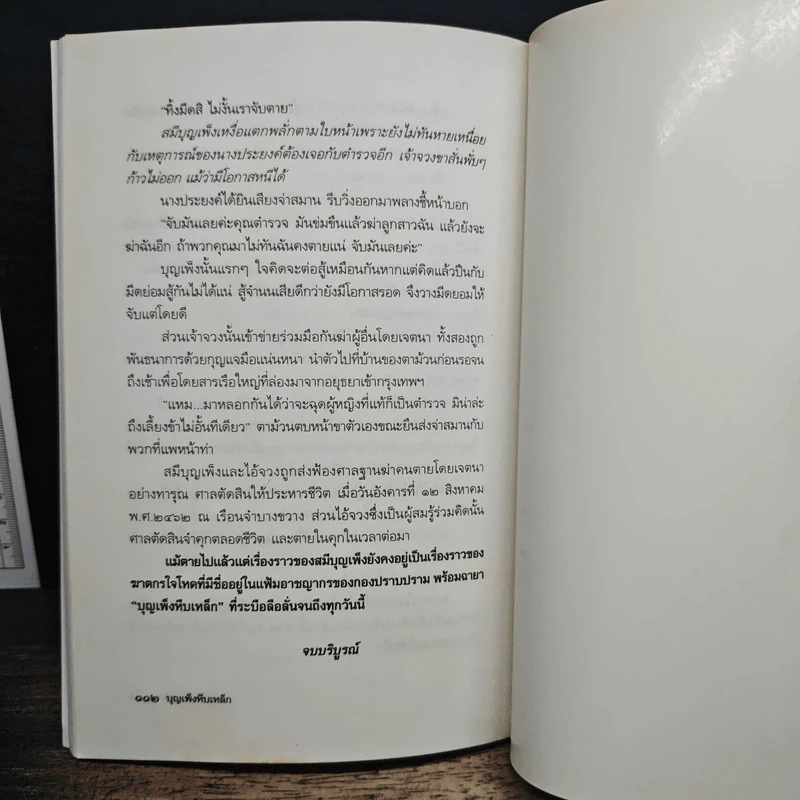 “ทิ้งมีดสิ ไม่งั้นเราจับตาย”
สมีบุญเพ็งเหงื่อแตกพลั่กตามใบหน้าเพราะยังไม่ทันหายเหนื่อย
กับเหตุการณ์ของนางประยงค์ต้องเจอกับตำรวจอีก เจ้าจวงขาสั่นพั่บๆ
ก้าวไม่ออก แม้ว่ามีโอกาสหนีได้
นางประยงค์ได้ยินเสียงจ่าสมาน รีบวิ่งออกมาพลางชี้หน้าบอก
“จับมันเลยค่ะคุณตำรวจ มันข่มขืนแล้วฆ่าลูกสาวฉัน แล้วยังจะ
ฆ่าฉันอีก ถ้าพวกคุณมาไม่ทันฉันคงตายแน่ จับมันเลยค่ะ”
บุญเพ็งนั้นแรกๆ ใจคิดจะต่อสู้เหมือนกันหากแต่คิดแล้วปืนกับ
มีดย่อมสู้กันไม่ได้แน่ สู้จำนนเสียดีกว่ายังมีโอกาสรอด จึงวางมีดยอมให้
จับแต่โดยดี
ส่วนเจ้าจวงนั้นเข้าข่ายร่วมมือกันฆ่าผู้อื่นโดยเจตนา ทั้งสองถูก
พันธนาการด้วยกุญแจมือแน่นหนา นำตัวไปที่บ้านของตาม้วนก่อนรอจน
ถึงเช้าเพื่อโดยสารเรือใหญ่ที่ล่องมาจากอยุธยาเข้ากรุงเทพฯ
“แหม...มาหลอกกันได้ว่าจะฉุดผู้หญิงที่แท้ก็เป็นตำรวจ มิน่าล่ะ
ถึงเลี้ยงข้าไม่อั้นทีเดียว” ตาม้วนตบหน้าขาตัวเองขณะยืนส่งจ่าสมานกับ
พวกที่แพหน้าท่า
สมีบุญเพ็งและไอ้จวงถูกส่งฟ้องศาลฐานฆ่าคนตายโดยเจตนา
อย่างทารุณ ศาลตัดสินให้ประหารชีวิต เมื่อวันอังคารที่ ๑๒ สิงหาคม
พ.ศ.๒๔๖๒ ณ เรือนจำบางขวาง ส่วนไอ้จวงซึ่งเป็นผู้สมรู้ร่วมคิดนั้น
ศาลตัดสินจำคุกตลอดชีวิต และตายในคุกในเวลาต่อมา
แม้ตายไปแล้วแต่เรื่องราวของสมีบุญเพ็งยังคงอยู่เป็นเรื่องราวของ
ฆาตกรใจโหดที่มีชื่ออยู่ในแฟ้มอาชญากรของกองปราบปราม พร้อมฉายา
“บุญเพ็งหีบเหล็ก” ที่ระบือลือลั่นจนถึงทุกวันนี้
จบบริบูรณ์
๑๑๒ บุญเพ็งหีบเหล็ก